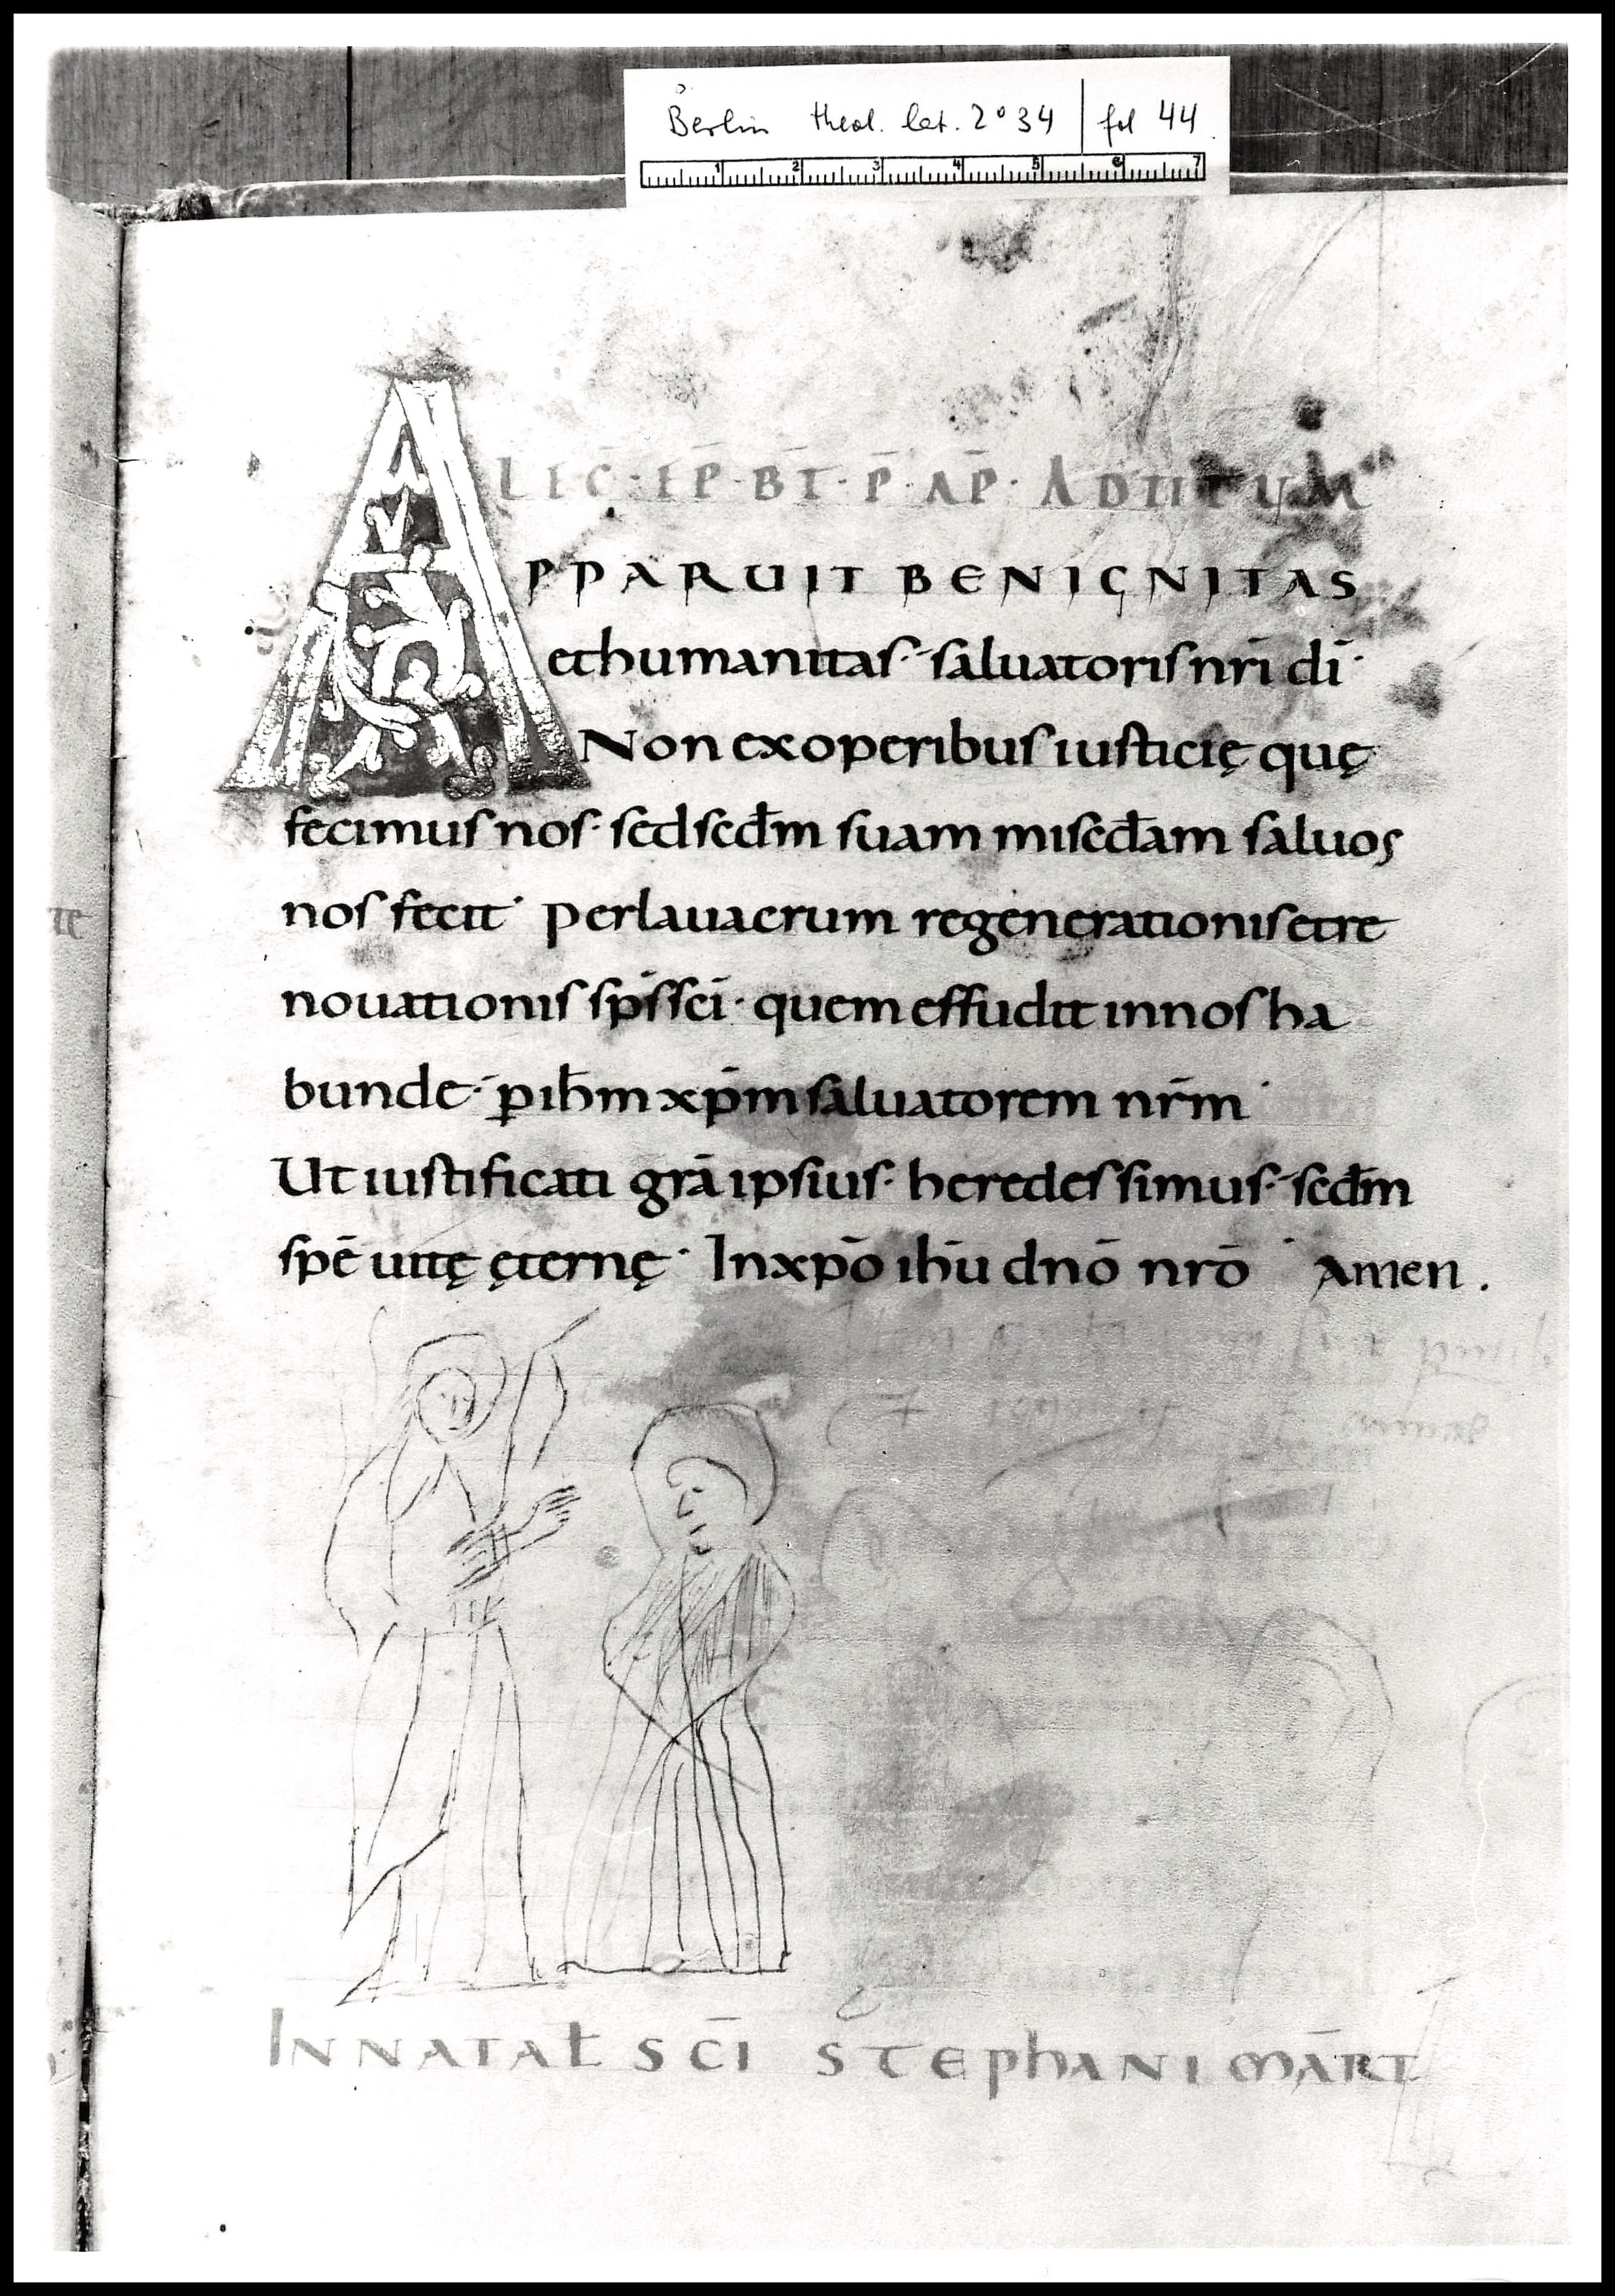 Berlin theol. lat. 2° 34 | fol 44
1 2 3 4 5 6 7
LEC̄·EP̄·BT̄·P̄·AP̄·AD TITUM
APPARUIT BENIGNITAS
et humanitas· saluatoris nr̄i dī·
Non ex operibus iusticię quę
fecimus nos· sed scd̄m suam misc̄dam saluos
nos fecit· per lauacrum regenerationis et re
nouationis sp̄s sc̄i· quem effudit in nos ha
bunde· p̱ ih̄m xp̄m saluatorem nr̄m·
Ut iustificati gr̄a ipsius· heredes simus· scd̄m
spē uitę ęternę· In xp̄o ih̄u dn̄o nr̄o· Amen.
IN NATAŁ SC̄I STEPHANI MĀRT